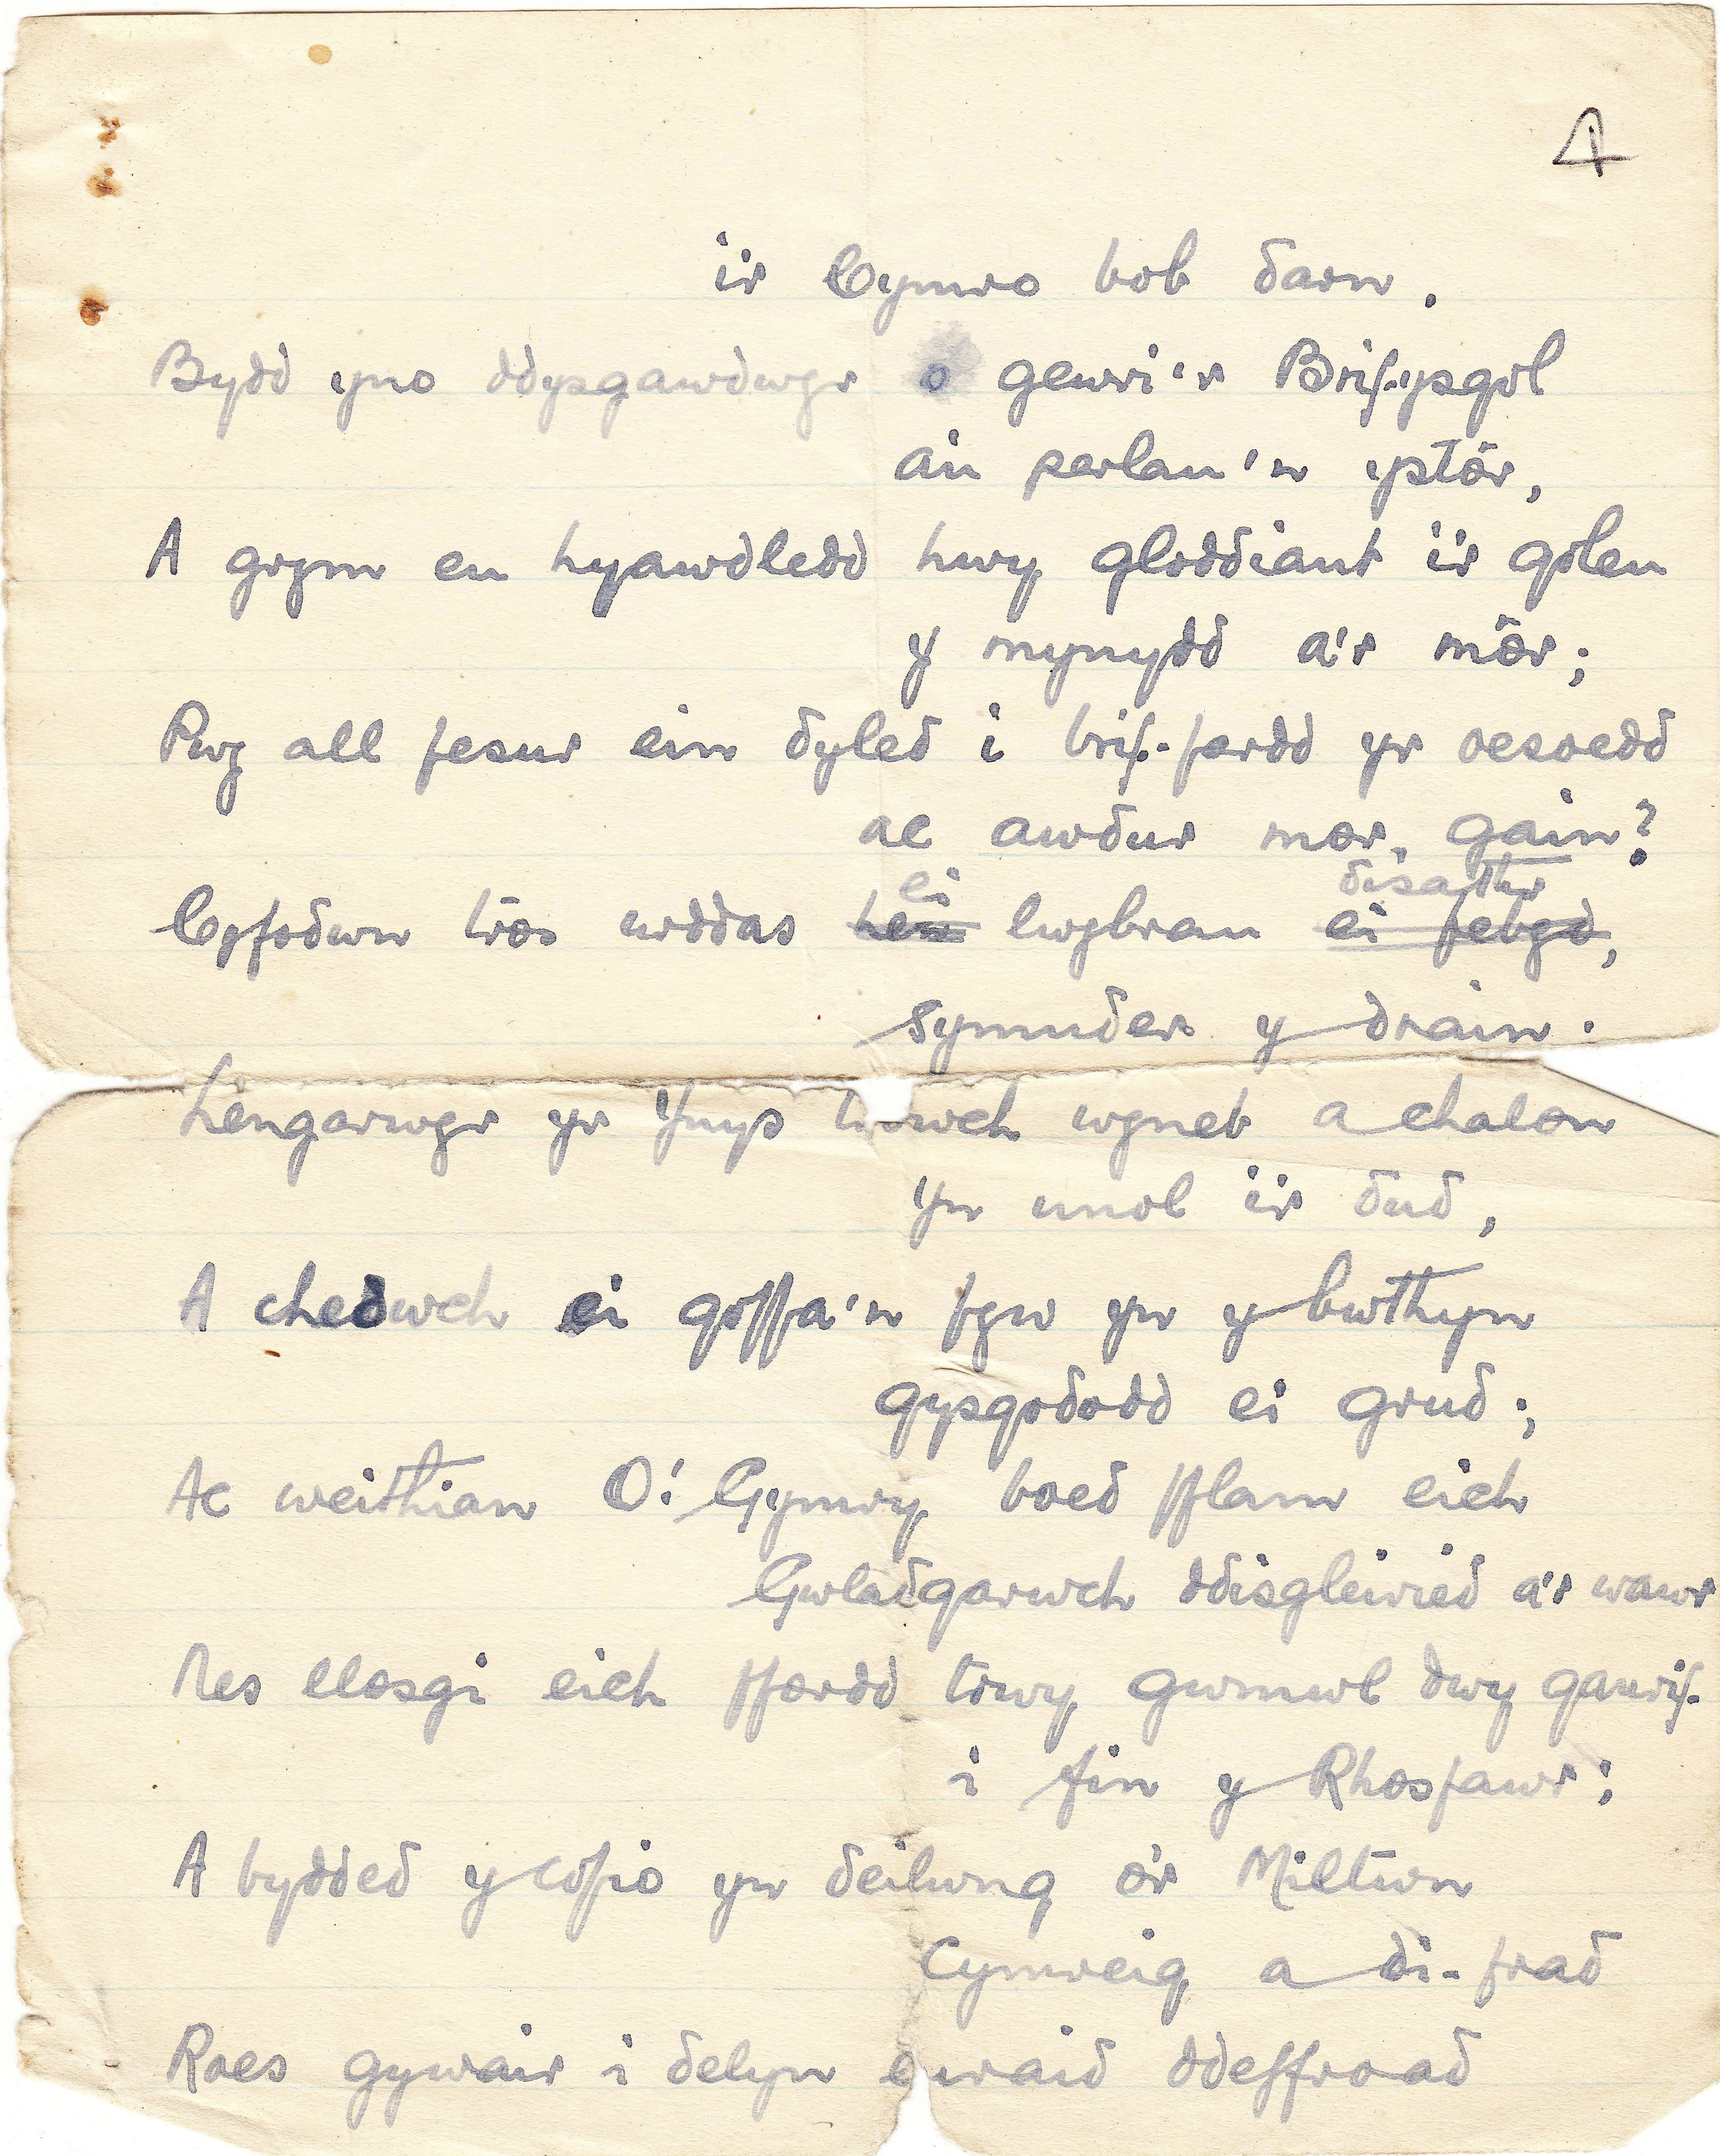 4
i'r Cymro bob darn.
Bydd yno ddysgawdwyr o gewri'r Brif-ysgol
a'u perlau'n ystôr,
A grym eu hyawdledd hwy gloddiant i'r goleu
y mynydd a'r môr;
Pwy all fesur ein dyled i brif-fardd yr oesoedd
ac awdur mor gain?
ei disathr
Cyfodwn tros urddas hen lwybrau ei febyd,
Symuder y drain.
Lengarwyr yr Ynys wyneb a chalon
Yn unol i'r dud,
A chedwch ei goffa'n fyw yn y bwthyn
gysgododd ei grud;
Ac weithian O! Gymry boed fflam eich
Gwladgarwch ddisgleiried a'r wawr
Nes llosgi eich ffordd trwy gwmwl dwy ganrif
i fin y Rhosfawr;
A bydded y copio yn deilwng o'r Miltwn
Cymreig a di-frad
Roes gywair i delyn euraid ddeffroad